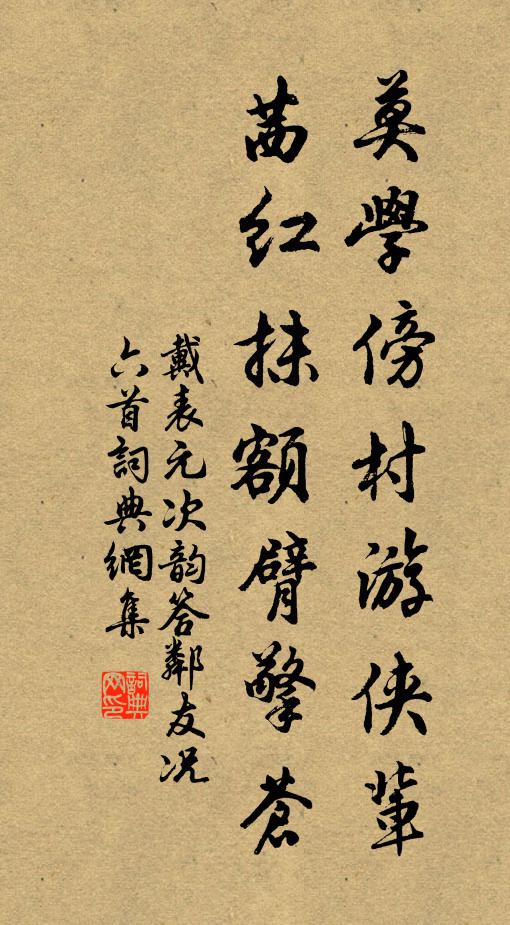 莫學傍村游俠輩
茜紅抹額臂擎蒼
戴表元次韵答鄰友况
六首詞典網集
詞典
网印